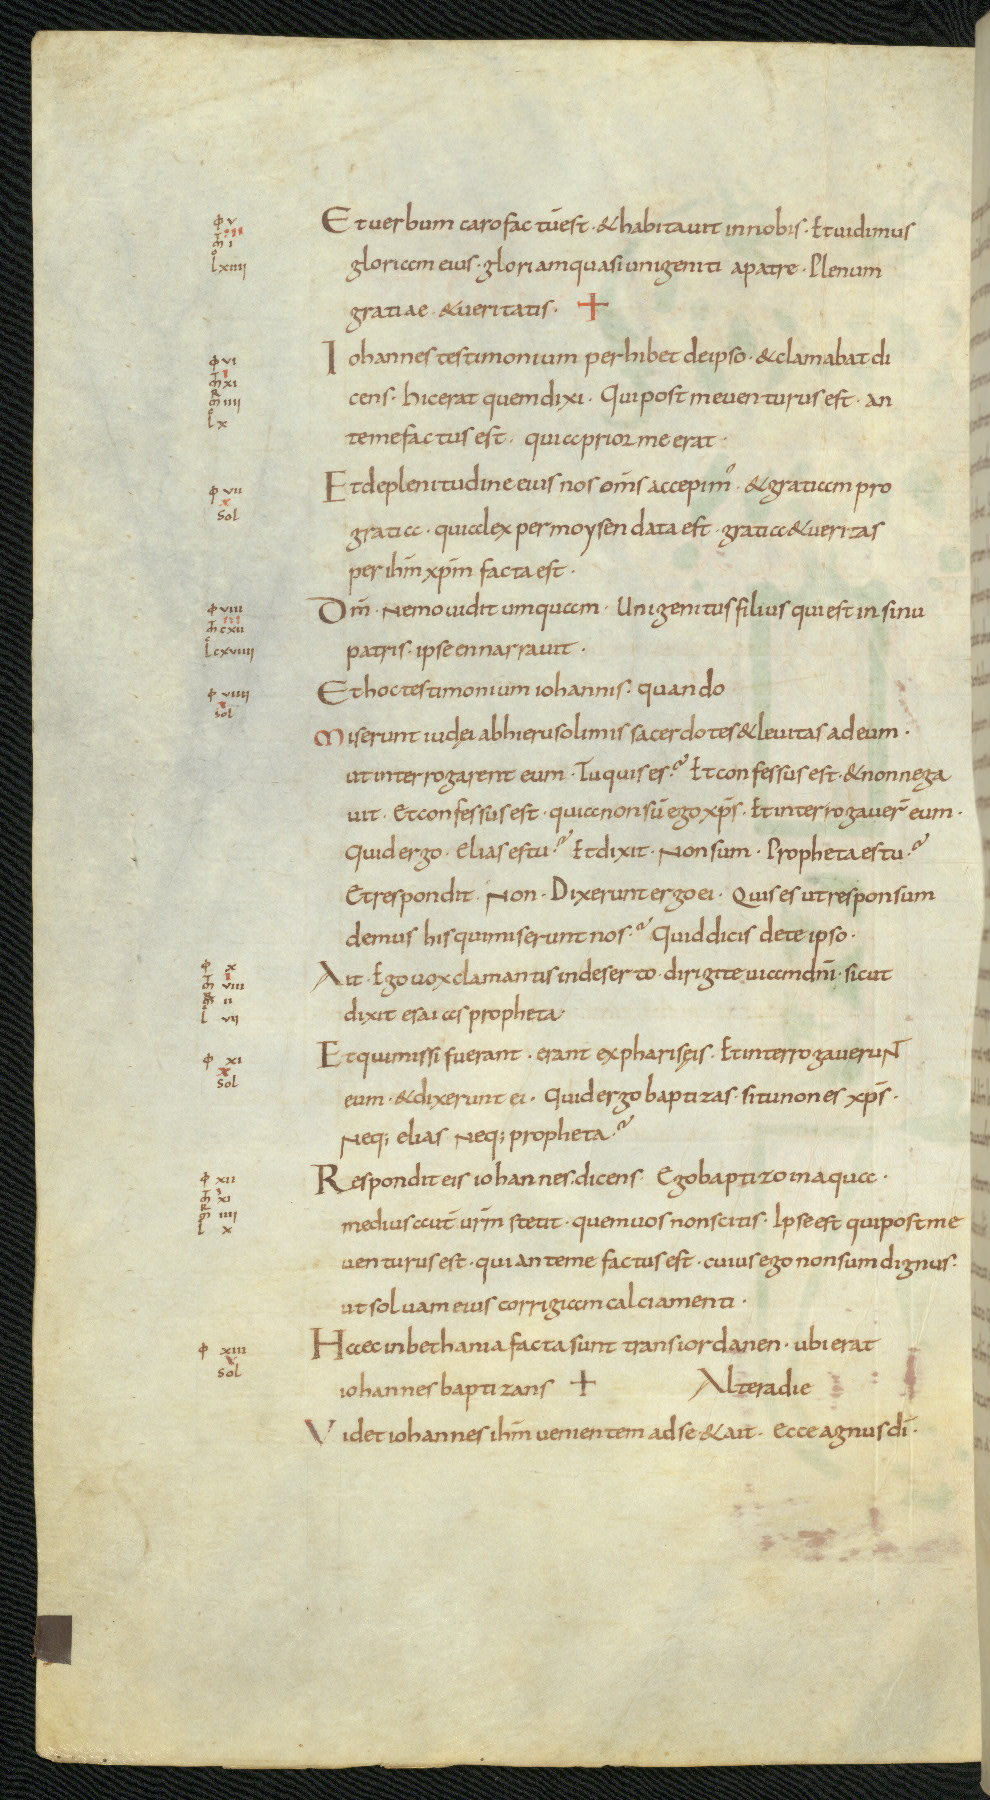 Et uerbum caro factū est · & habitauit in nobis · Et uidimus
gloriam eius · gloriam quasi unigeniti a patre · Plenum
gratiae · & ueritatis · +
Iohannes testimonium perhibet de ipso · & clamabat di
cens · hic erat quem dixi · Qui post me uenturus est · an
te me factus est · quia prior me erat ·
Et de plenitudine eius nos om̄s accepim᾽ · & gratiam pro
gratia · quia lex per moysen data est · gratia & ueritas
per ih̄m xp̄m facta est ·
D̄m · Nemo uidit umquam · Unigenitus filius qui est in sinu
patris · ipse ennarrauit ·
Et hoc testimonium iohannis · quando
Miserunt iudęi ab hierusolimis sacerdotes & leuitas ad eum ·
ut interrogarent eum · Tu quis es ? Et confessus est · & non nega
uit · Et confessus est · quia non sū ego xp̄s · Et interrogauer̄ eum ·
Quid ergo · Elias es tu ? Et dixit · Non sum · Propheta es tu ?
Et respondit · Non · Dixerunt ergo ei · Quis es ut responsum
demus his qui miserunt nos ? Quid dicis de te ipso ·
Ait · Ego uox clamantis in deserto · dirigite uiam dn̄i · sicut
dixit esaias propheta ·
Et qui missi fuerant · erant ex pharisęis · Et interrogauerunt
eum · & dixerunt ei · Quid ergo baptizas · si tu non es xp̄s ·
Neq; elias Neq; propheta ?
Respondit eis iohannes · dicens · Ego baptizo in aqua ·
medius aut̄ ur̄m stetit · quem uos non scitis · Ipse est qui post me
uenturus est · qui ante me factus est · cuius ego non sum dignus ·
ut soluam eius corrigiam calciamenti ·
Haec in bethania facta sunt trans iordanen · ubi erat
iohannes baptizans + Altera die
Videt iohannes ih̄m uenientem ad se & ait · Ecce agnus dī ·